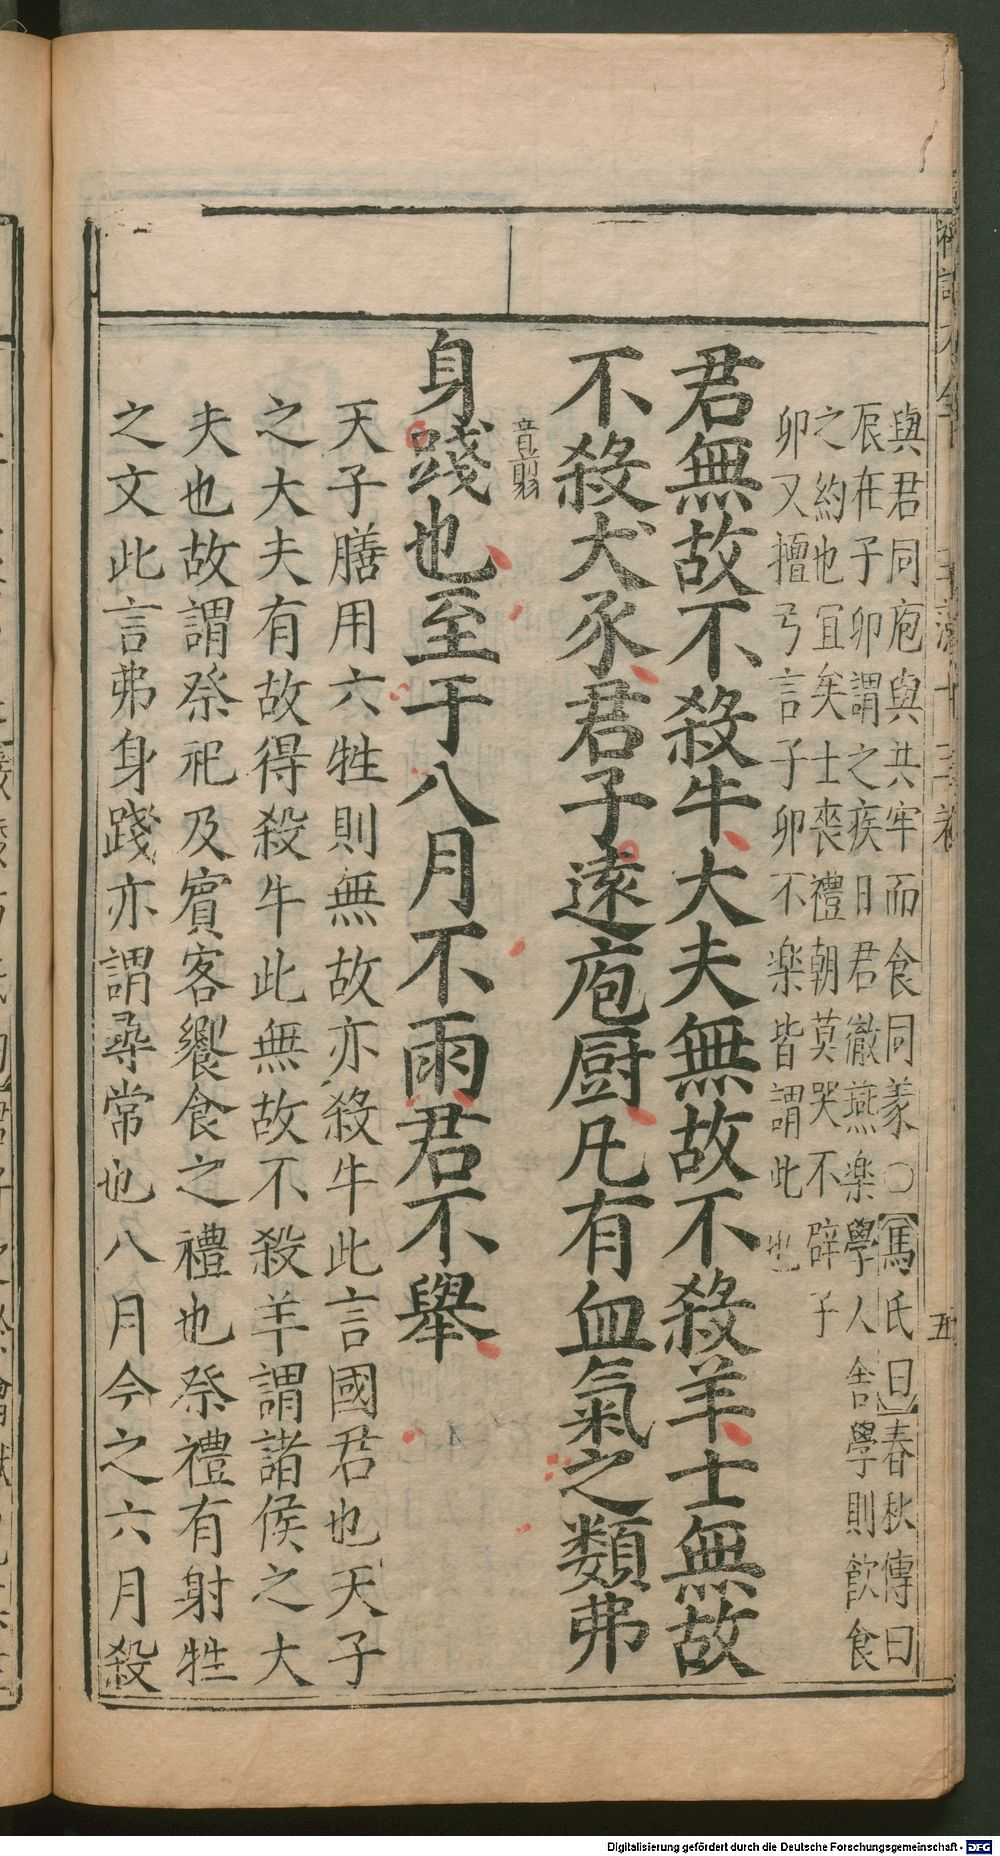 與君同庖與共牢而食同義○【馮氏曰】春秋傳曰
辰在子卯謂之疾日君徹燕楽學人舎學則飲食
之約也冝矣士䘮禮朝莫哭不辟子
卯又擅弓言子卯不楽皆謂此也
君無故不殺牛大夫無故不殺羊士無故
不殺犬豕君子遠庖厨凡有血氣之類弗
音翦
身踐也至于八月不雨君不舉
天子膳用六牲則無故亦殺牛此言國君也天子
之大夫有故得殺牛此無故不殺羊謂諸侯之大
夫也故謂祭祀及賓客饗食之禮也祭禮有射牲
之文此言弗身踐亦謂尋常也八月今之六月殺
五
Digitalisierung gefördert durch die Deutsche Forschungsgemeinschaft - DFG